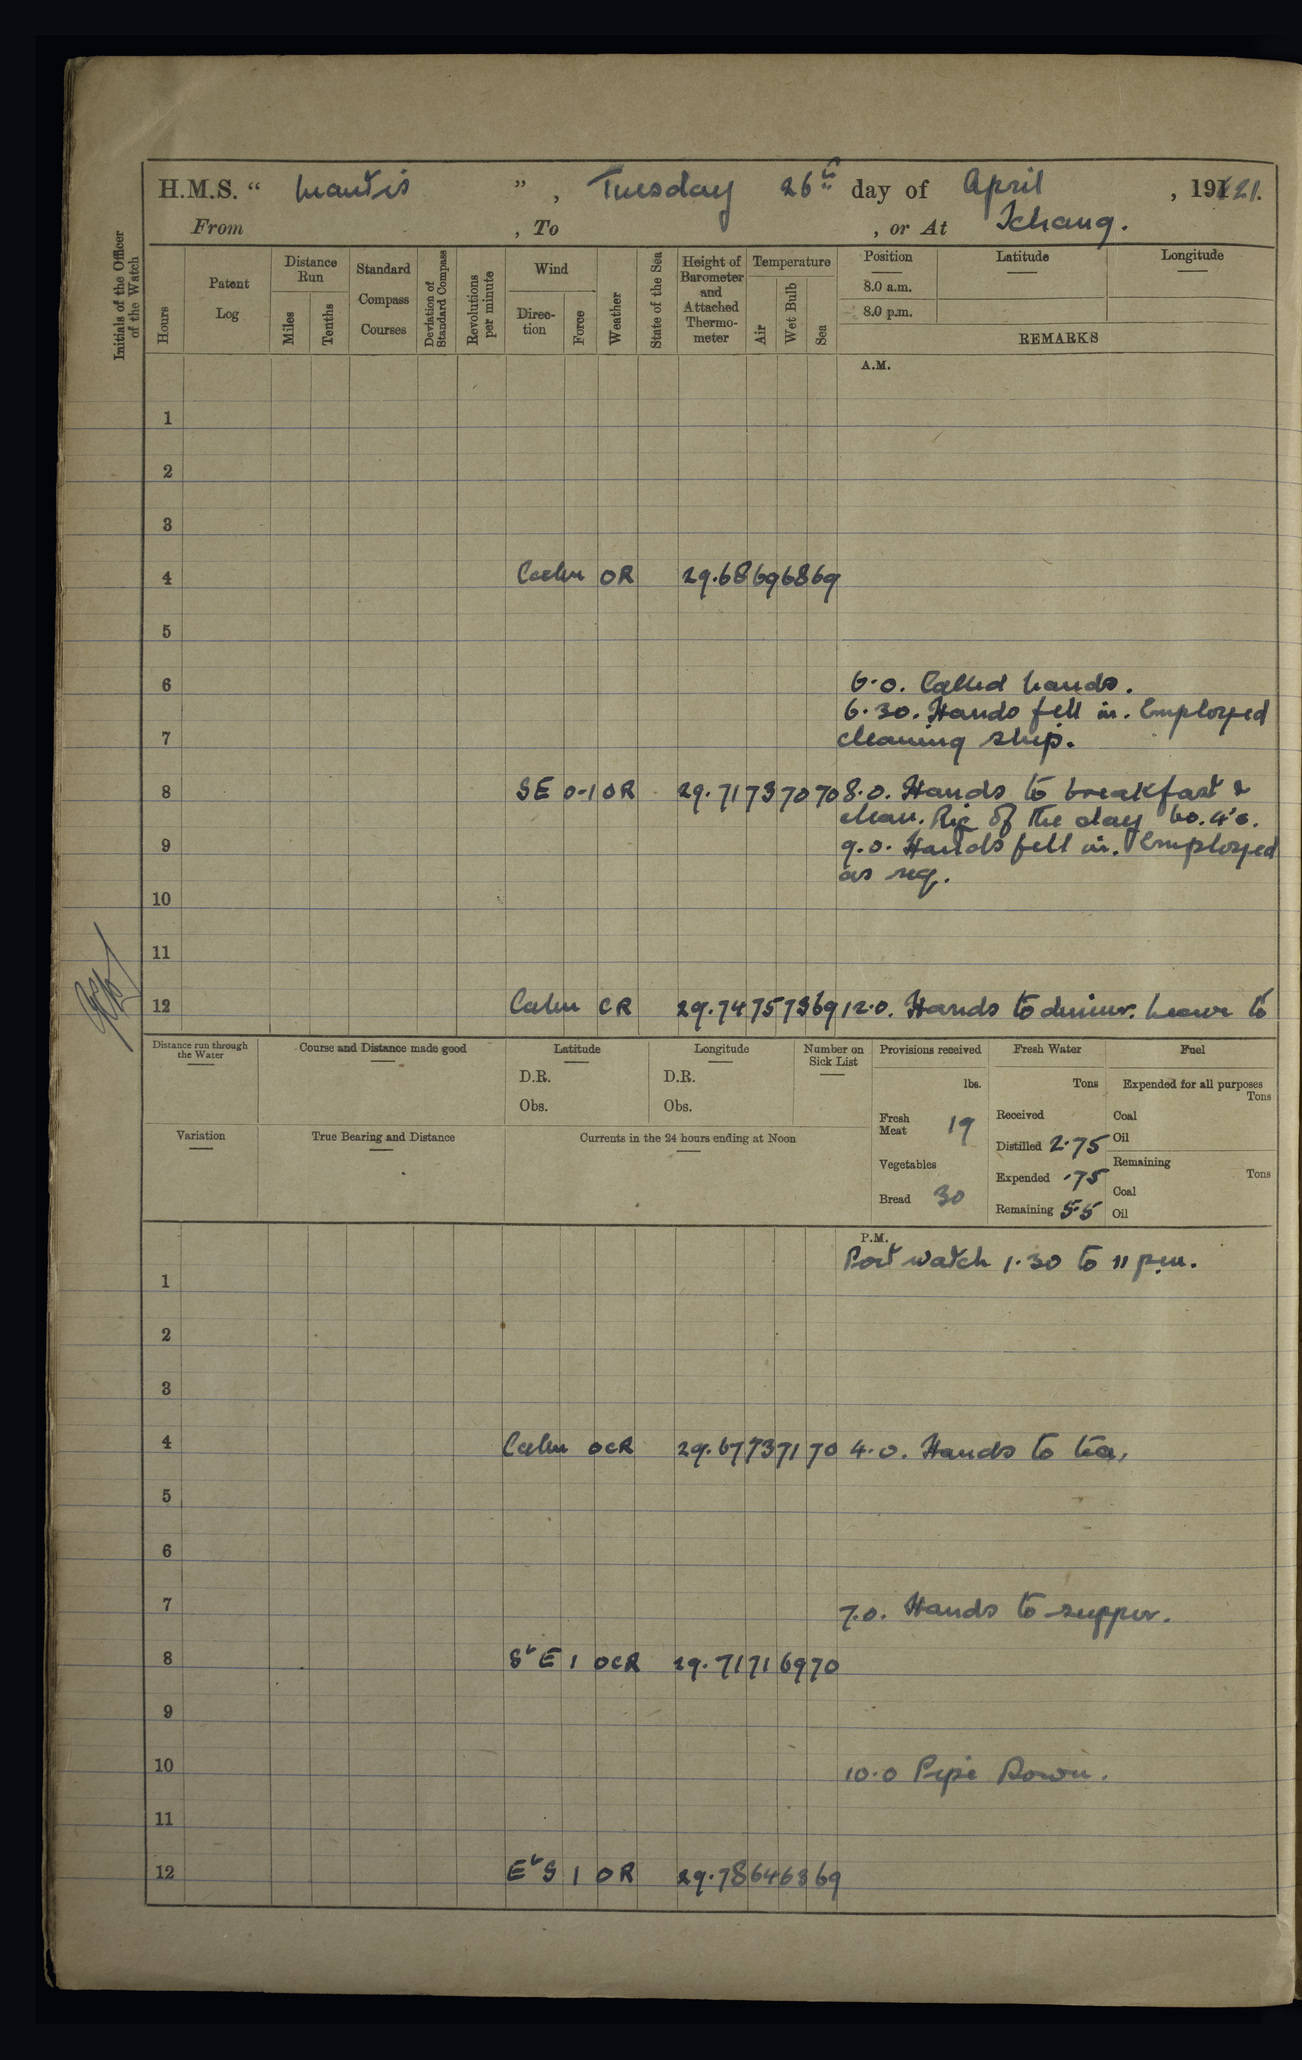 H.M.S. " Mantis ", Tuesday 26th day of April, 1921.
From , To , or At Ichang.
Initials of the Officer of the Watch
Hours
Patent Log
Distance Run
Miles
Tenths
Standard Compass Courses
Deviation of Standard Compass
Revolutions per minute
Wind
Direction
Force
Weather
State of the Sea
Height of Barometer and Attached Thermometer
Temperature
Air
Wet Bulb
Sea
Position Latitude Longitude
8.0 a.m.
8.0 p.m.
REMARKS
A.M.
1
2
3
4 Calm OR 29.68 69 68 69
5
6 6.0. Called hands.
6.30. Hands fell in. Employed
7 cleaning ship.
8 SE 0-1 OR 29.71 73 70 70 8.0. Hands to breakfast &
clean. Rig of the day No. 4's.
9 9.0. Hands fell in. Employed
as req.
10
11
12 Calm CR 29.74 75 73 69 12.0. Hands to dinner. Leave to
Distance run through the Water
Course and Distance made good
Latitude
D.R.
Obs.
Longitude
D.R.
Obs.
Number on Sick List
Variation
True Bearing and Distance
Currents in the 24 hours ending at Noon
Provisions received
lbs.
Fresh Meat 19
Vegetables
Bread 30
Fresh Water
Tons
Received
Distilled 2.75
Expended .75
Remaining 5.5
Fuel
Expended for all purposes
Tons
Coal
Oil
Remaining
Tons
Coal
Oil
P.M.
Port watch 1.30 to 11 pm.
1
2
3
4 Calm OCR 29.67 73 71 70 4.0. Hands to tea.
5
6
7 7.0. Hands to supper.
8 SbE 1 OCR 29.71 71 69 70
9
10 10.0 Pipe Down.
11
12 EbS 1 OR 29.78 64 63 69